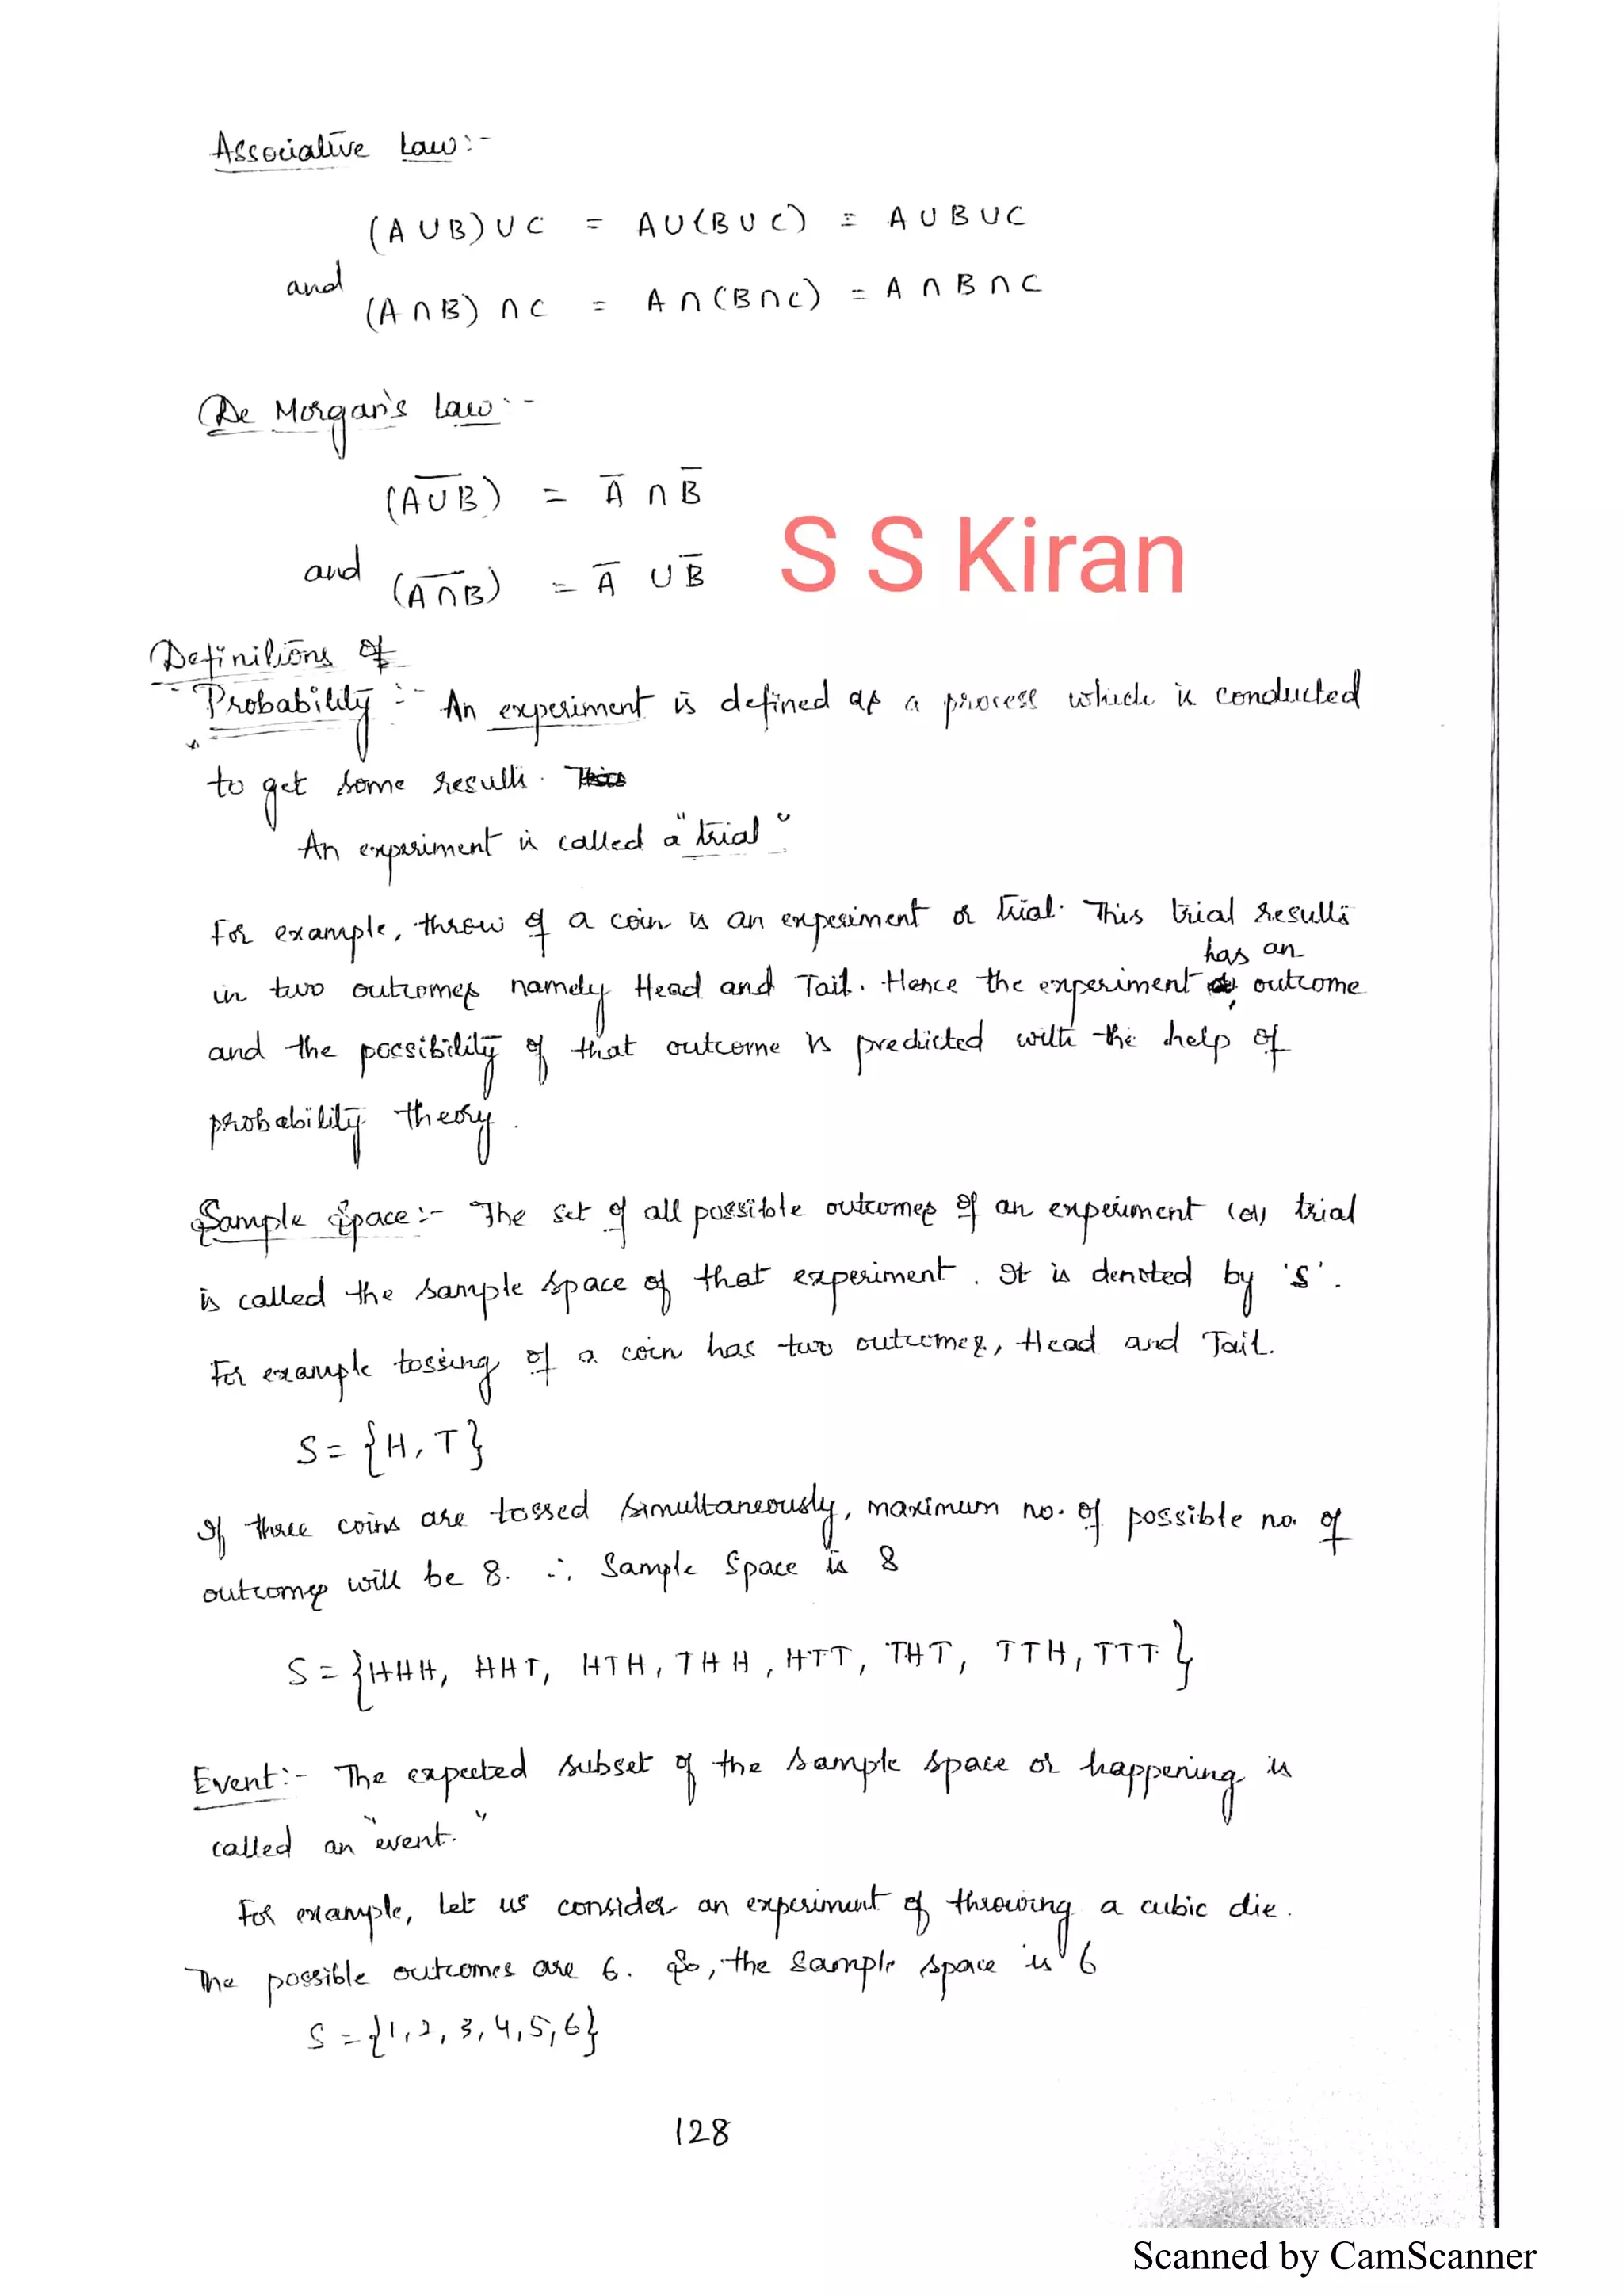 Associative Law :-
(A ∪ B) ∪ C = A ∪ (B ∪ C) = A ∪ B ∪ C
and
(A ∩ B) ∩ C = A ∩ (B ∩ C) = A ∩ B ∩ C
De Morgan's Law :-
(A̅ ∪̅ B̅) = A̅ ∩ B̅
S S Kiran
and (A̅ ∩̅ B̅) = A̅ ∪ B̅
Definitions of
Probability :- An experiment is defined as a process which is conducted
to get some results.
An experiment is called a "trial"
For example, throw of a coin is an experiment or trial. This trial results
in two outcomes namely Head and Tail. Hence the experiment has an outcome
and the possibility of that outcome is predicted with the help of
probability theory.
Sample Space :- The set of all possible outcomes of an experiment (or) trial
is called the sample space of that experiment. It is denoted by 'S'.
For example tossing of a coin has two outcomes, Head and Tail.
S = {H, T}
If three coins are tossed simultaneously, maximum no. of possible no. of
outcomes will be 8. ∴ Sample Space is 8
S = {HHH, HHT, HTH, THH, HTT, THT, TTH, TTT}
Event :- The expected subset of the sample space or happening is
called an "event."
For example, let us consider an experiment of throwing a cubic die.
The possible outcomes are 6. So, the Sample space is 6
S = {1, 2, 3, 4, 5, 6}
128
Scanned by CamScanner